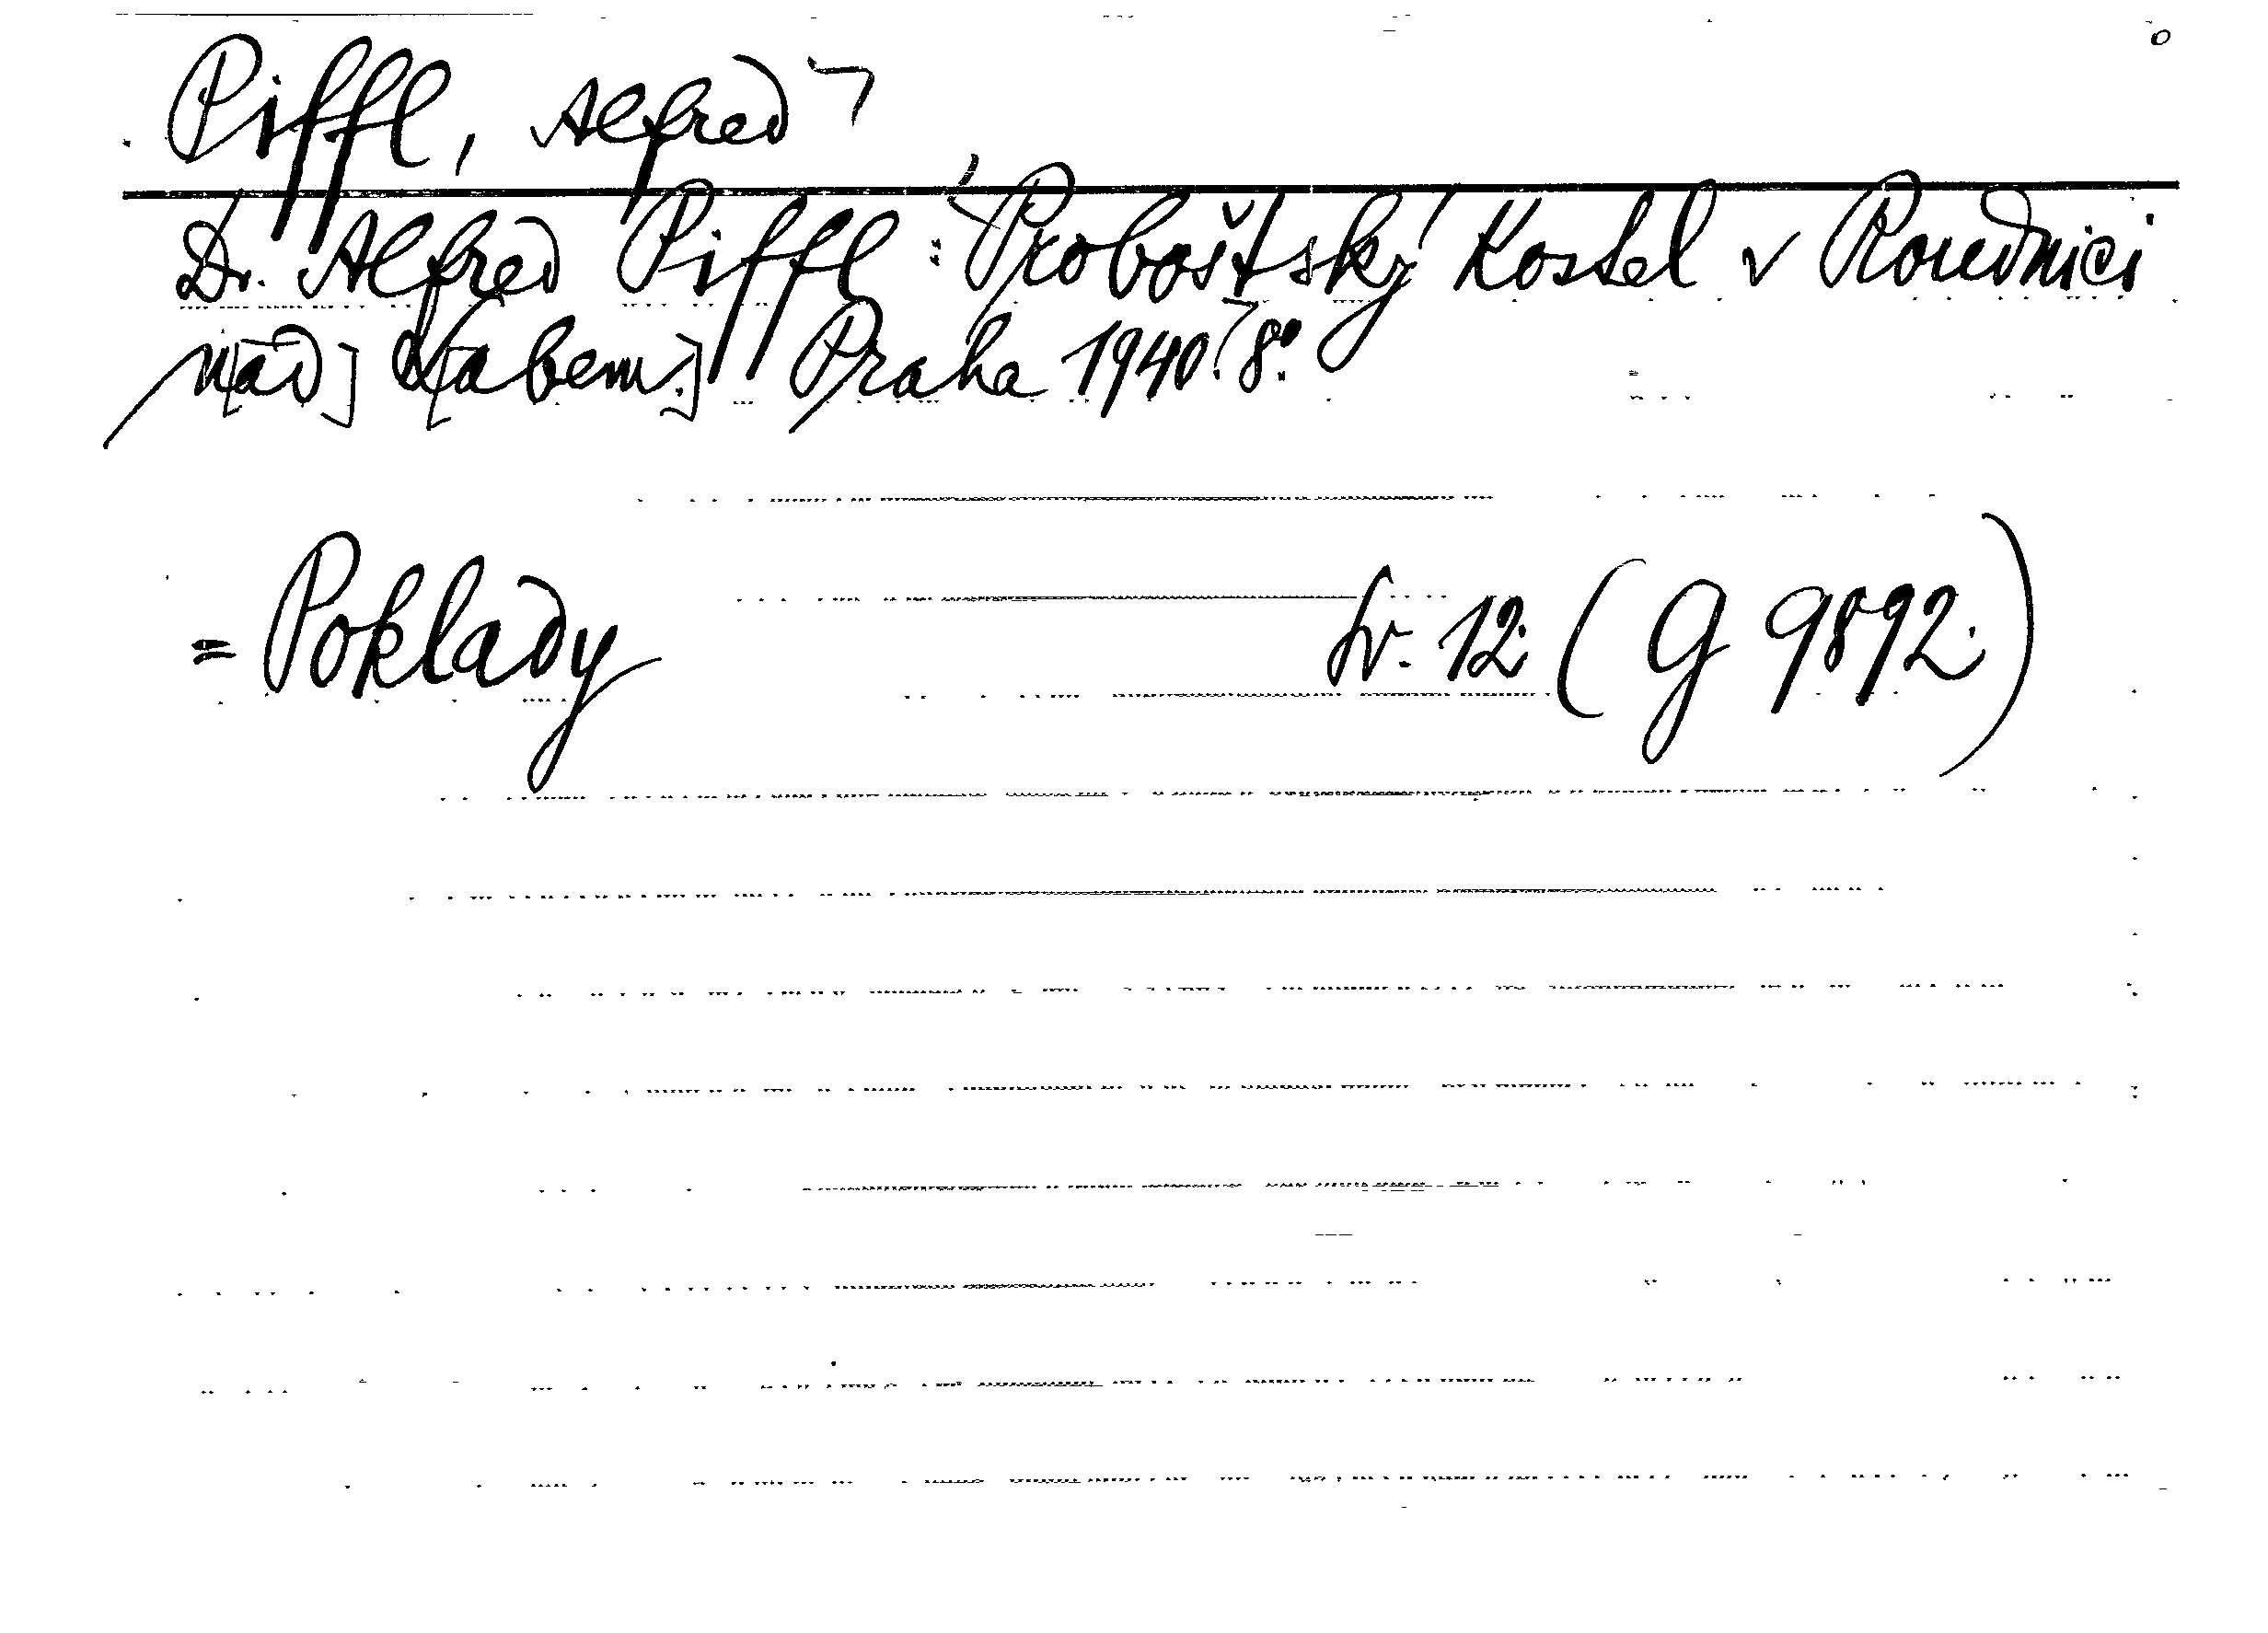 Piffl, Alfred
Dr. Alfred Piffl: Proboštský kostel v Roudnici
n[ad] L[abem.] Praha 1940. 8°.
= Poklady Sv. 12. (G 9892.)